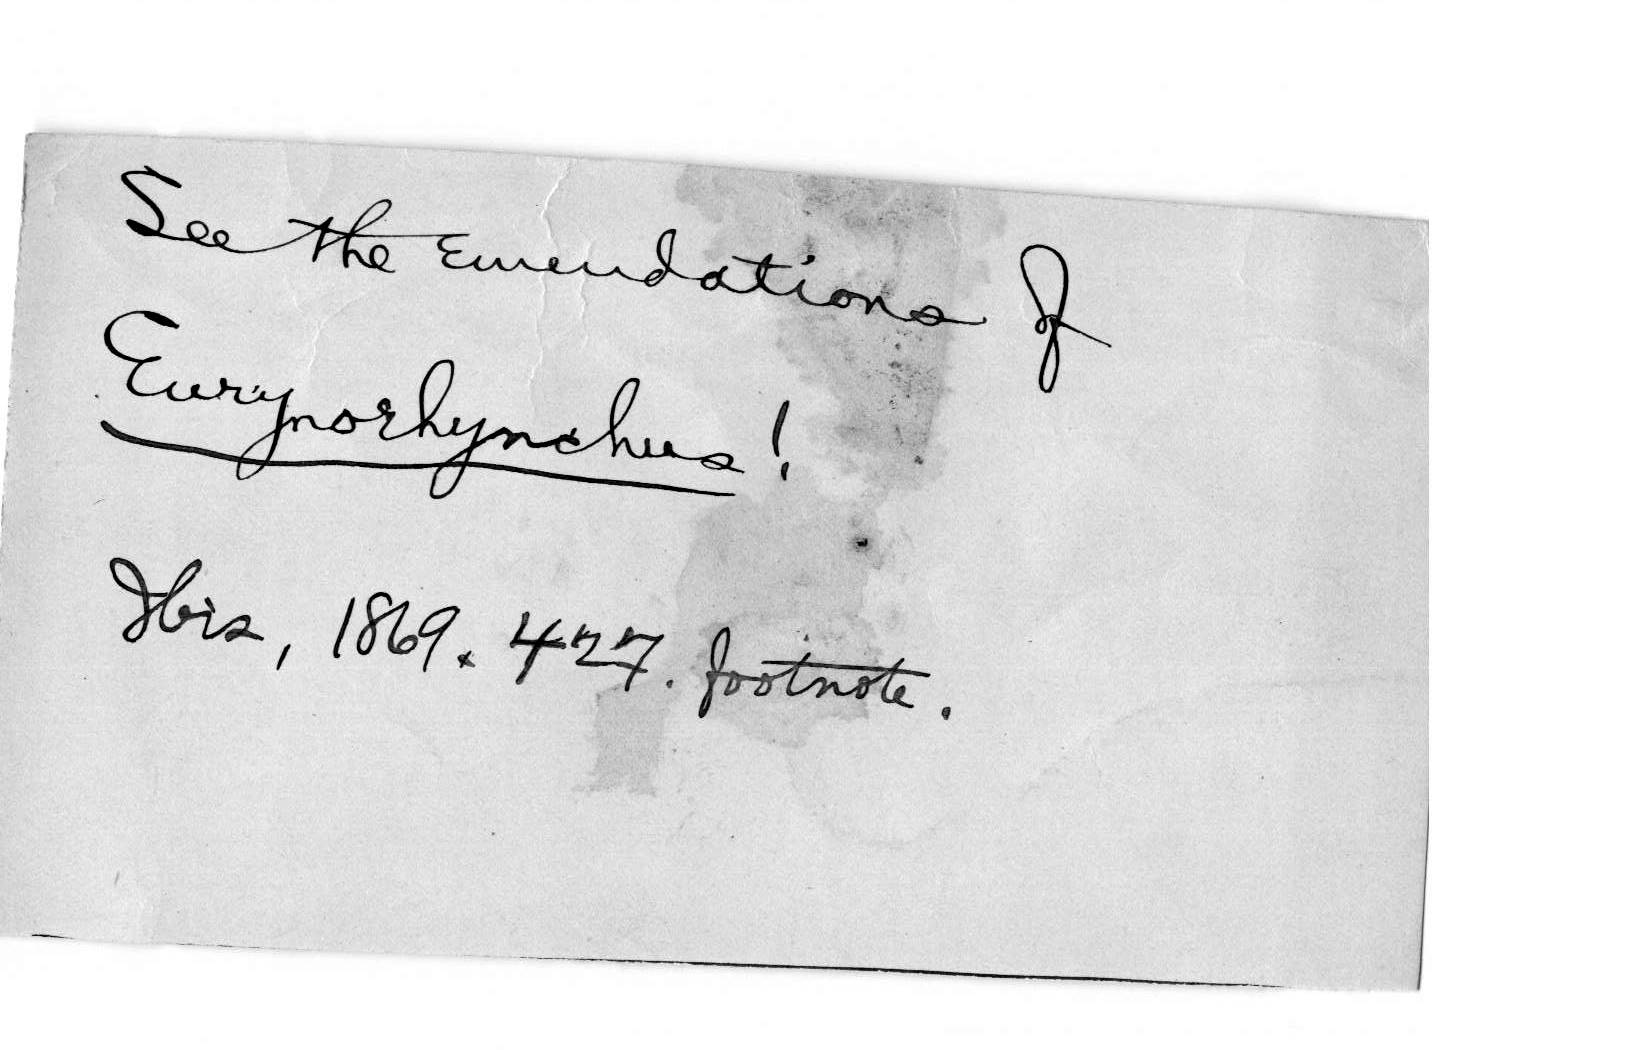 See the Emendations of
Eurynorhynchus!
Ibis, 1869. 427. footnote.